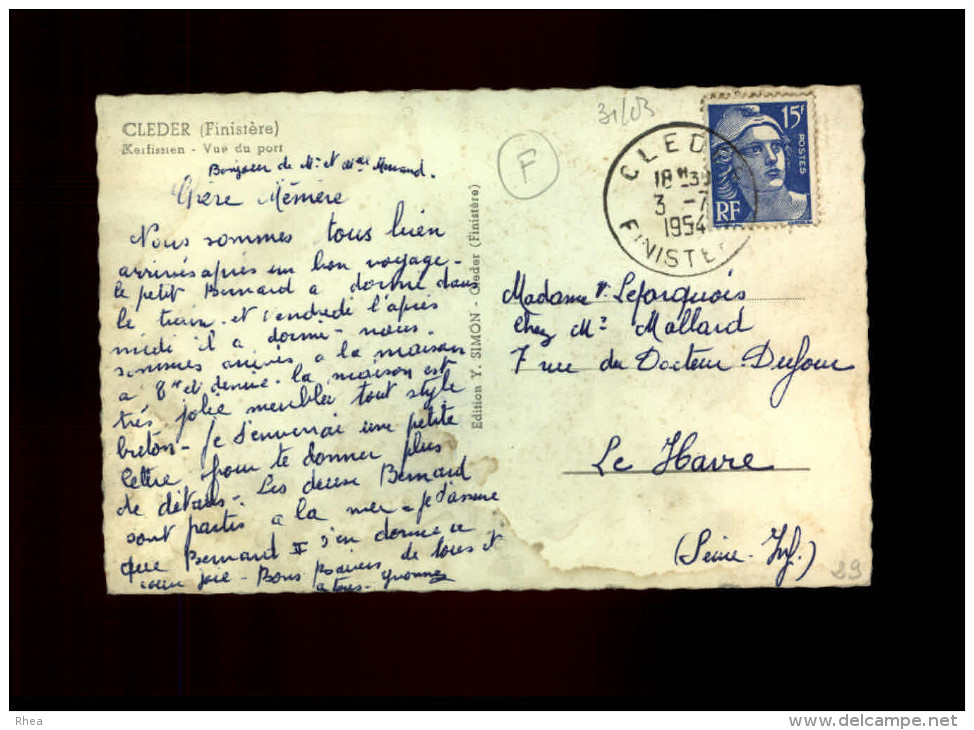 CLEDER (Finistère)
Kerfissien - Vue du port
Bonjour de Mr et Mme
Chère Mémère
Nous sommes tous bien
arrivés après un bon voyage -
le petit Bernard a dormi dans
le train - et vendredi l'après
midi il a dormi - nous
sommes arrivés à la maison
a 8 H et demie - la maison est
très jolie meublée tout style
breton - Je t'enverrai une petite
lettre pour te donner plus
de détails - Les deux Bernard
sont partis a la mer - je t'assure
que Bernard II s'en donne a
cœur joie - Bons baisers de tous et
a tous - Yvonne
Edition Y. SIMON - Cleder (Finistère)
31/03
F
CLED
18 H 30
3 -7
1954
FINISTE
15F
POSTES
RF
Madame Vve Lefarquois
Chez Mr Mallard
7 rue du Docteur Dufour
Le Havre
(Seine-Inf.)
29
Rhea
www.delcampe.net